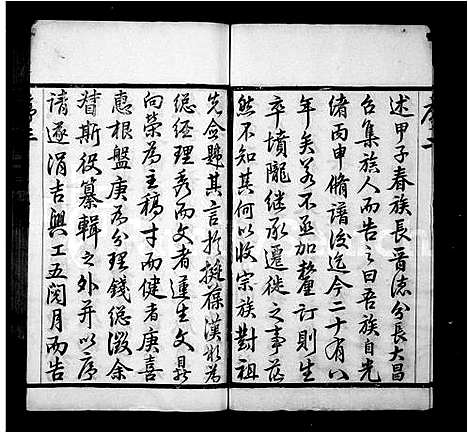 序二
述甲子春族長晋德分長大昌
召集族人而告之曰吾族自光
緒丙申脩譜後迄今二十有八
年矣若不亟加釐訂則生
卒墳隴继承遷徙之事茫
然不知其何以收宗族對祖
先僉韙其言於擬葆漢衫為
總经理秀而文者蓮生文昇
向榮為主稿才而健者庚喜
惠根盤庚為分理錢總徵余
督斯役纂輯之外并以序
請遂涓吉興工五閱月而告
序三